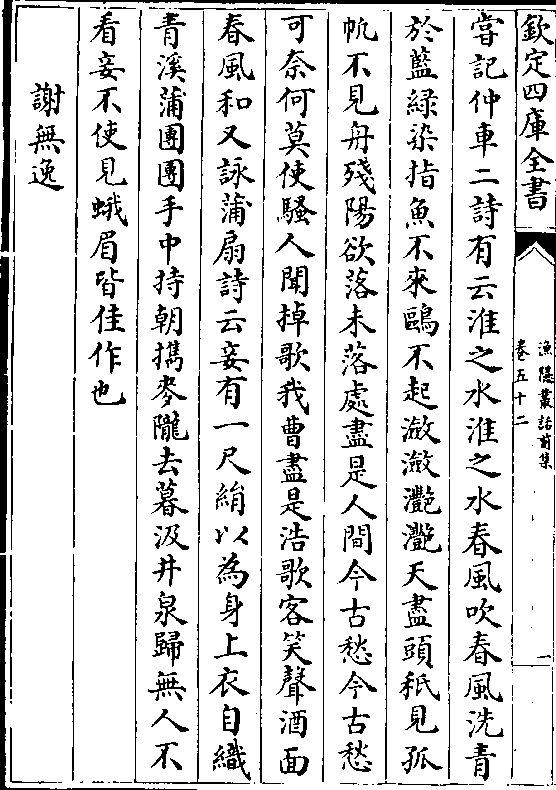 欽定四庫全書
漁隱叢話前集
卷五十二
一
嘗記仲車二詩有云淮之水淮之水春風吹春風洗青
於藍綠染指魚不來鷗不起瀲瀲灧灧天盡頭秖見孤
帆不見舟殘陽欲落未落處盡是人間今古愁今古愁
可奈何莫使騷人聞掉歌我曹盡是浩歌客笑聲酒面
春風和又詠蒲扇詩云妾有一尺絹以為身上衣自織
青溪蒲團團手中持朝擕麥隴去暮汲井泉歸無人不
看妾不使見蛾眉皆佳作也
謝無逸